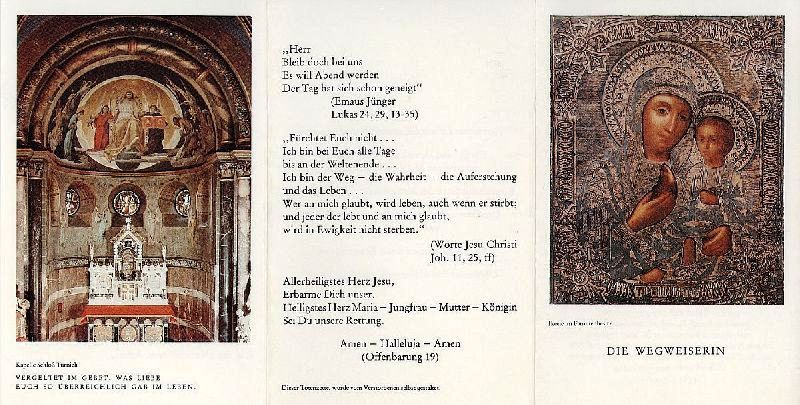 Kapelle Schloß Türnich
VERGELTET IM GEBET, WAS LIEBE
EUCH SO ÜBERREICHLICH GAB IM LEBEN.
„Herr
Bleib doch bei uns
Es will Abend werden
Der Tag hat sich schon geneigt“
(Emaus Jünger
Lukas 24, 29, 13-35)
„Fürchtet Euch nicht . . .
Ich bin bei Euch alle Tage
bis an der Weltenende . . .
Ich bin der Weg – die Wahrheit – die Auferstehung
und das Leben . . .
Wer an mich glaubt, wird leben, auch wenn er stirbt;
und jeder der lebt und an mich glaubt,
wird in Ewigkeit nicht sterben.“
(Worte Jesu Christi
Joh. 11, 25, ff)
Allerheiligstes Herz Jesu,
Erbarme Dich unser.
Heiligstes Herz Maria – Jungfrau – Mutter – Königin
Sei Du unsere Rettung.
Amen – Halleluja – Amen
(Offenbarung 19)
Dieser Totenzettel wurde vom Verstorbenen selbst gestaltet.
DIE WEGWEISERIN